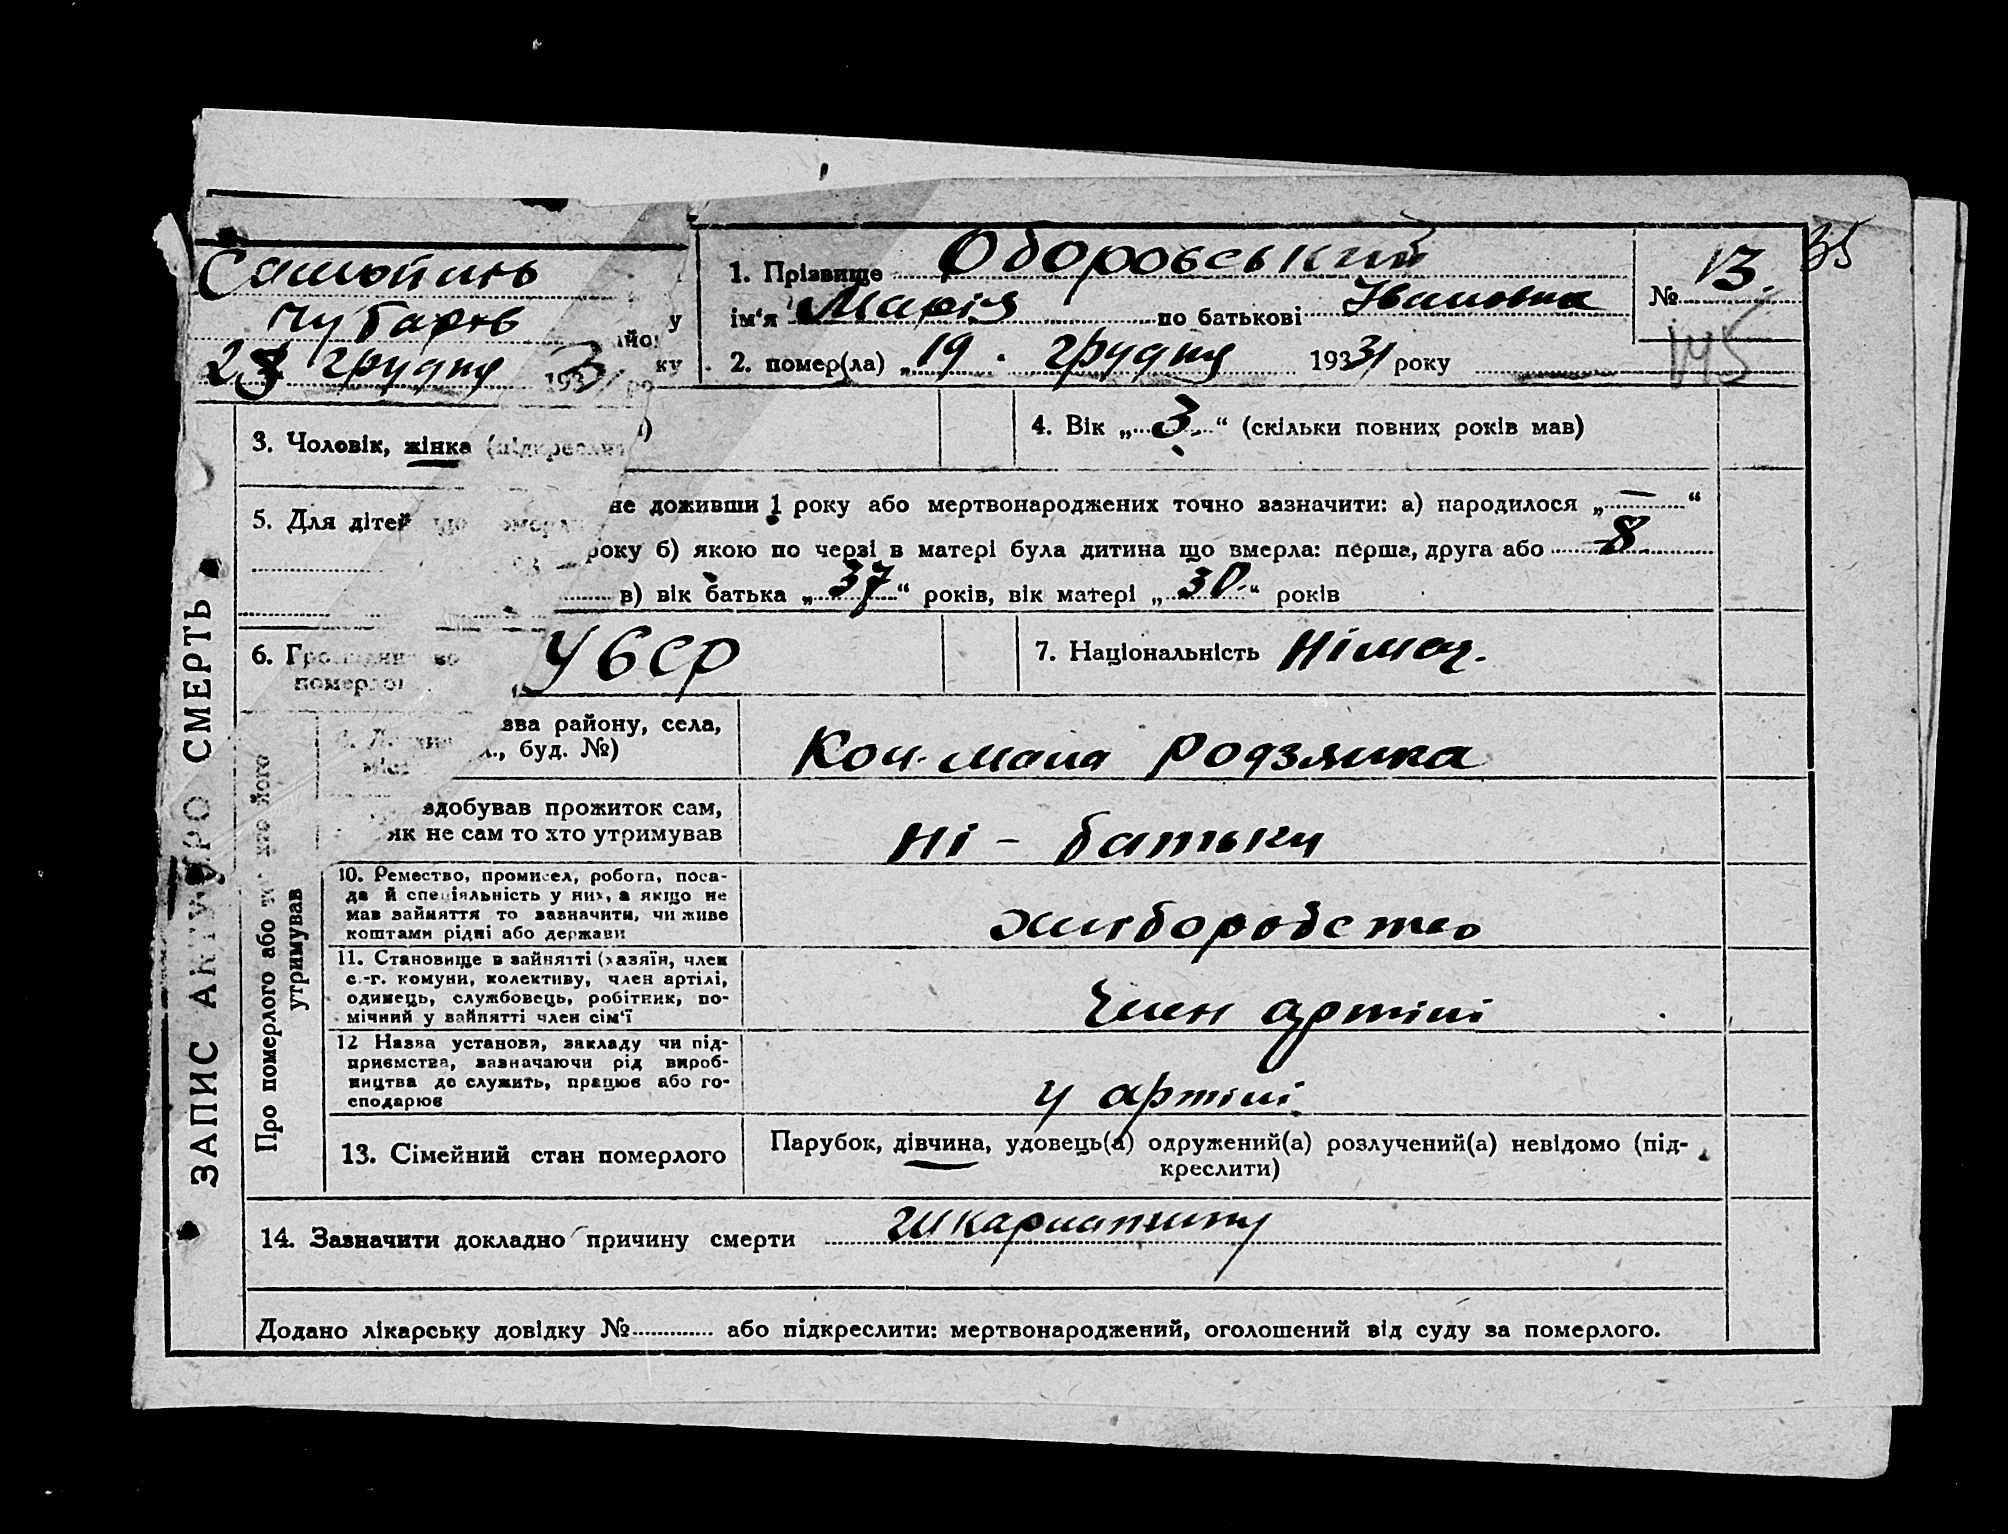 35
1. Прізвище Оборовський
№ 13.
ім'я Марія по батькові Івановна
145
2. помер(ла) „19. грудня 1931 року
Чубарів
у
23 грудня 193 ку
3. Чоловік, жінка (підкреслити)
4. Вік „3.“ (скільки повних років мав)
5. Для дітей що померли не доживши 1 року або мертвонароджених точно зазначити: а) народилося „—“
року б) якою по черзі в матері була дитина що вмерла: перша, друга або 8
в) вік батька „37“ років, вік матері „30.“ років
6. Громадянство УССР
померлого
7. Національність Німец.
ЗАПИС АКТУ ПРО СМЕРТЬ
Про померлого або того хто його
утримував
зва району, села,
буд. №)
Родзянка
здобував прожиток сам,
як не сам то хто утримував
Ні – батьки
10. Ремество, промисел, робота, поса-
да й спеціяльність у них, а якщо не
мав зайняття то зазначити, чи живе
коштами рідні або держави
хліборобство
11. Становище в зайнятті (хазяїн, член
с.-г. комуни, колективу, член артілі,
одинець, службовець, робітник, по-
мічний у зайнятті член сім'ї
Член артілі
12 Назва установи, закладу чи під-
приємства, зазначаючи рід вироб-
ництва де служить, працює або го-
сподарює
у артілі
13. Сімейний стан померлого
Парубок, дівчина, удовець(а) одружений(а) розлучений(а) невідомо (під-
креслити)
14. Зазначити докладно причину смерти Шкарлатина
Додано лікарську довідку № або підкреслити: мертвонароджений, оголошений від суду за померлого.